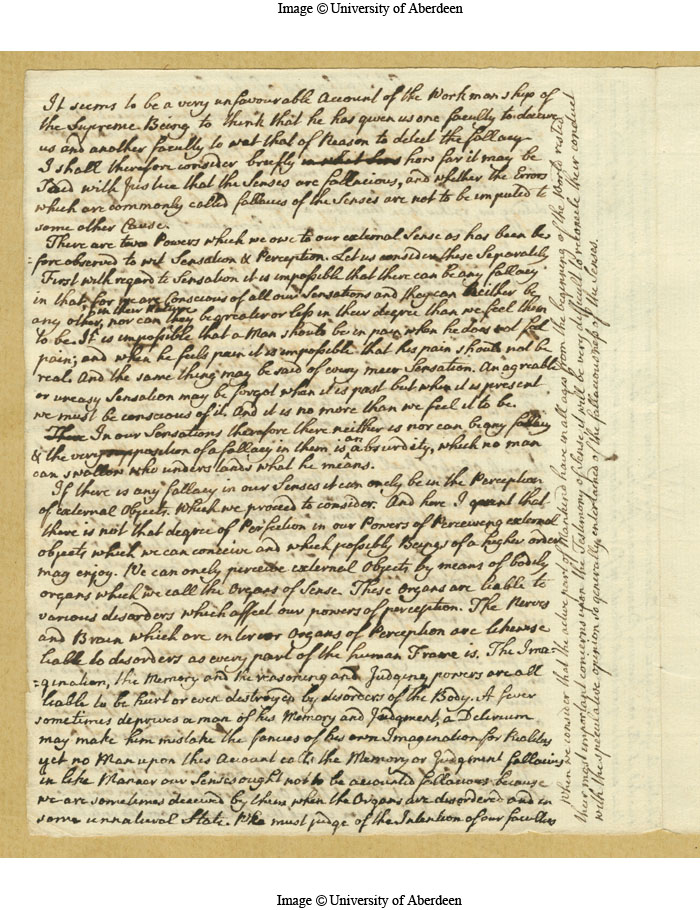 Image © University of Aberdeen
It seems to be a very unfavourable Account of the Workmanship of
the Supreme Being to think that he has given us one faculty to deceive
us and another faculty to wit that of Reason to detect the fallacy
I shall therefore consider briefly in what how far it may be
said with Justice that the Senses are fallacious, and whether the Errors
which are commonly called fallacies of the Senses are not to be imputed to
some other Cause.
There are two Powers which we owe to our external Sense as has been be
=fore observed to wit Sensation & Perception. Let us consider these Separately
First with regard to Sensation it is impossible that there can be any fallacy
in that, for we are Conscious of all our Sensations and they can neither be
in their Nature
any other, nor can they be greater or less in their degree than we feel them
to be. It is impossible that a Man should be in pain when he does not feel
pain; and when he feels pain it is impossible that his pain should not be
real. And the same thing may be said of every meer Sensation. An agreable
or uneasy Sensation may be forgot when it is past but when it is present
we must be conscious of it. And it is no more than we feel it to be.
There In our Sensations therefore there neither is nor can be any fallacy
& the very supposition of a fallacy in them is an absurdity, which no man
can swallow who understands what he means.
If there is any fallacy in our Senses it can onely be in the Perception
of external Objects. Which we proceed to consider. And here I grant that
there is not that degree of Perfection in our Powers of Perceiving external
objects which we can conceive and which possibly Beings of a higher order
may enjoy. We can onely perceive external Objects by means of bodily
organs which we call the Organs of Sense. These Organs are liable to
various disorders which affect our powers of perception. The Nerves
and Brain which are interior Organs of Perception are likewise
liable to disorders as every part of the human Frame is. The Ima
=gination, the Memory and the reasoning and Judging powers are all
liable to be hurt or even destroyed by disorders of the Body. A fever
sometimes deprives a man of his Memory and Judgment, a Delirium
may make him mistake the fancies of his own Imagination for Realities
yet no Man upon this Account calls the Memory or Judgment fallacious
in like Manner our Senses ought not to be accounted fallacious because
we are sometimes deceived by them when the Organs are disordered and in
some unnatural State. We must judge of the Intention of our faculties
When we consider that the active part of Mankind have in all ages from the beginning of the World rested
their most important concerns upon the Testimony of Sense, it will be very difficult to reconcile their conduct
with the speculative opinion so generally entertained of the fallaciousness of the Senses.
Image © University of Aberdeen